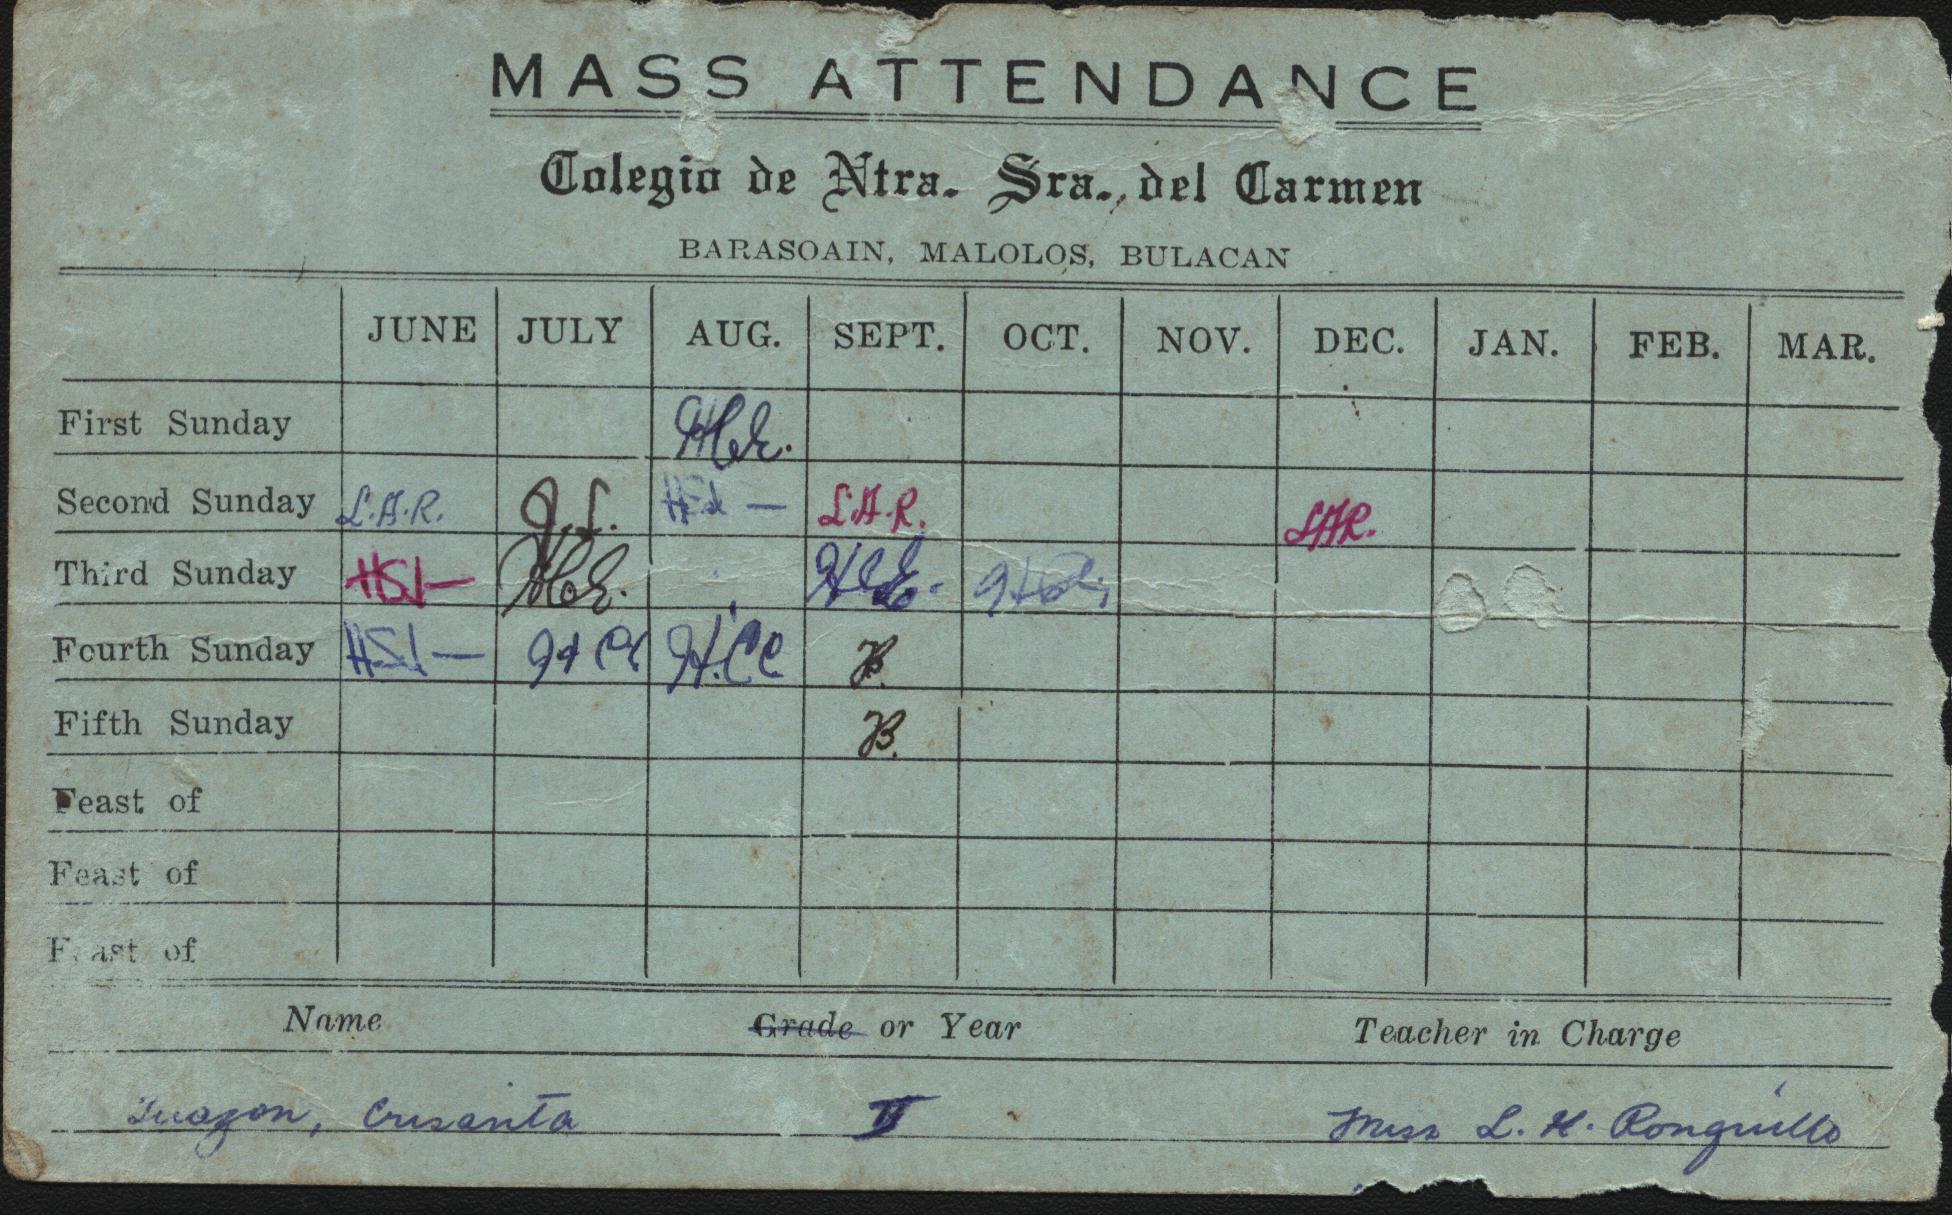 MASS ATTENDANCE
Colegio de Ntra. Sra. del Carmen
BARASOAIN, MALOLOS, BULACAN
JUNE JULY AUG. SEPT. OCT. NOV. DEC. JAN. FEB. MAR.
First Sunday
Second Sunday L.A.R. J.S. L.A.R. LAR.
Third Sunday
Fourth Sunday H.CC B.
Fifth Sunday B.
Feast of
Feast of
Feast of
Name Grade or Year Teacher in Charge
Tuazon, Crisanta II Miss L. H. Ronquillo